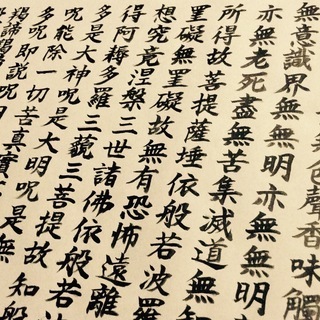 色聲香味觸
無意識界無無明亦無無明
亦無老死盡無苦集滅道無
所得故菩提薩埵依般若波羅
罣礙無罣礙故無有恐怖遠離
想究竟涅槃三世諸佛依般若
得阿耨多羅三藐三菩提故知般
多是大神呪是大明呪是無
呪能除一切苦真實
多呪即説呪